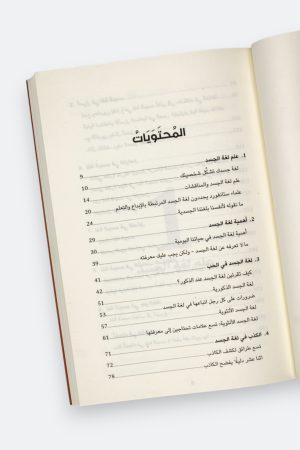 المُحتَوَيَات
1. علم لغة الجسد
لغة جسدك تشكّل شخصيتك 9
علم لغة الجسد والمناقشات 10
علماء ستانفورد يحددون لغة الجسد المرتبطة بالإبداع والتعلم 14
ما نقوله لأنفسنا بلغتنا الجسدية 20
24
2. أهمية لغة الجسد
أهمية لغة الجسد في حياتنا اليومية 29
ما لا تعرفه عن لغة الجسد - ولكن يجب عليك معرفته 30
39
3. لغة الجسد في الحب
كيف تقرئين لغة الجسد عند الذكور؟ 41
لغة الجسد الذكورية 42
ضرورات على كل رجل اتباعها في لغة الجسد 51
لغة الجسد الأنثوية 53
لغة الجسد الأنثوية: تسع علامات تحتاجين إلى معرفتها 57
61
4. الكذب في لغة الجسد
تسع طرائق لكشف الكاذب 71
اثنا عشر دليلًا يفضح الكاذب 72
78